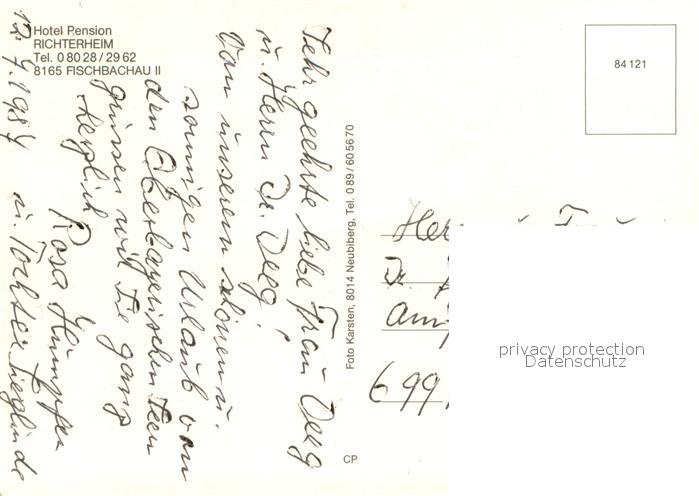 Hotel Pension
RICHTERHEIM
Tel. 0 80 28 / 29 62
8165 FISCHBACHAU II
12. 4. 1984
Sehr geehrte liebe Frau Deeg
u. Herrn Dr. Deeg!
Von unserem schönen u.
sonnigen Urlaub von
den Oberbayerischen Seen
grüssen wir Sie ganz
herzlich
Rosa
u. Tochter Sieglinde
Foto Karsten, 8014 Neubiberg, Tel. 0 89 / 60 56 70
CP
84 121
Dr.
699
privacy protection
Datenschutz